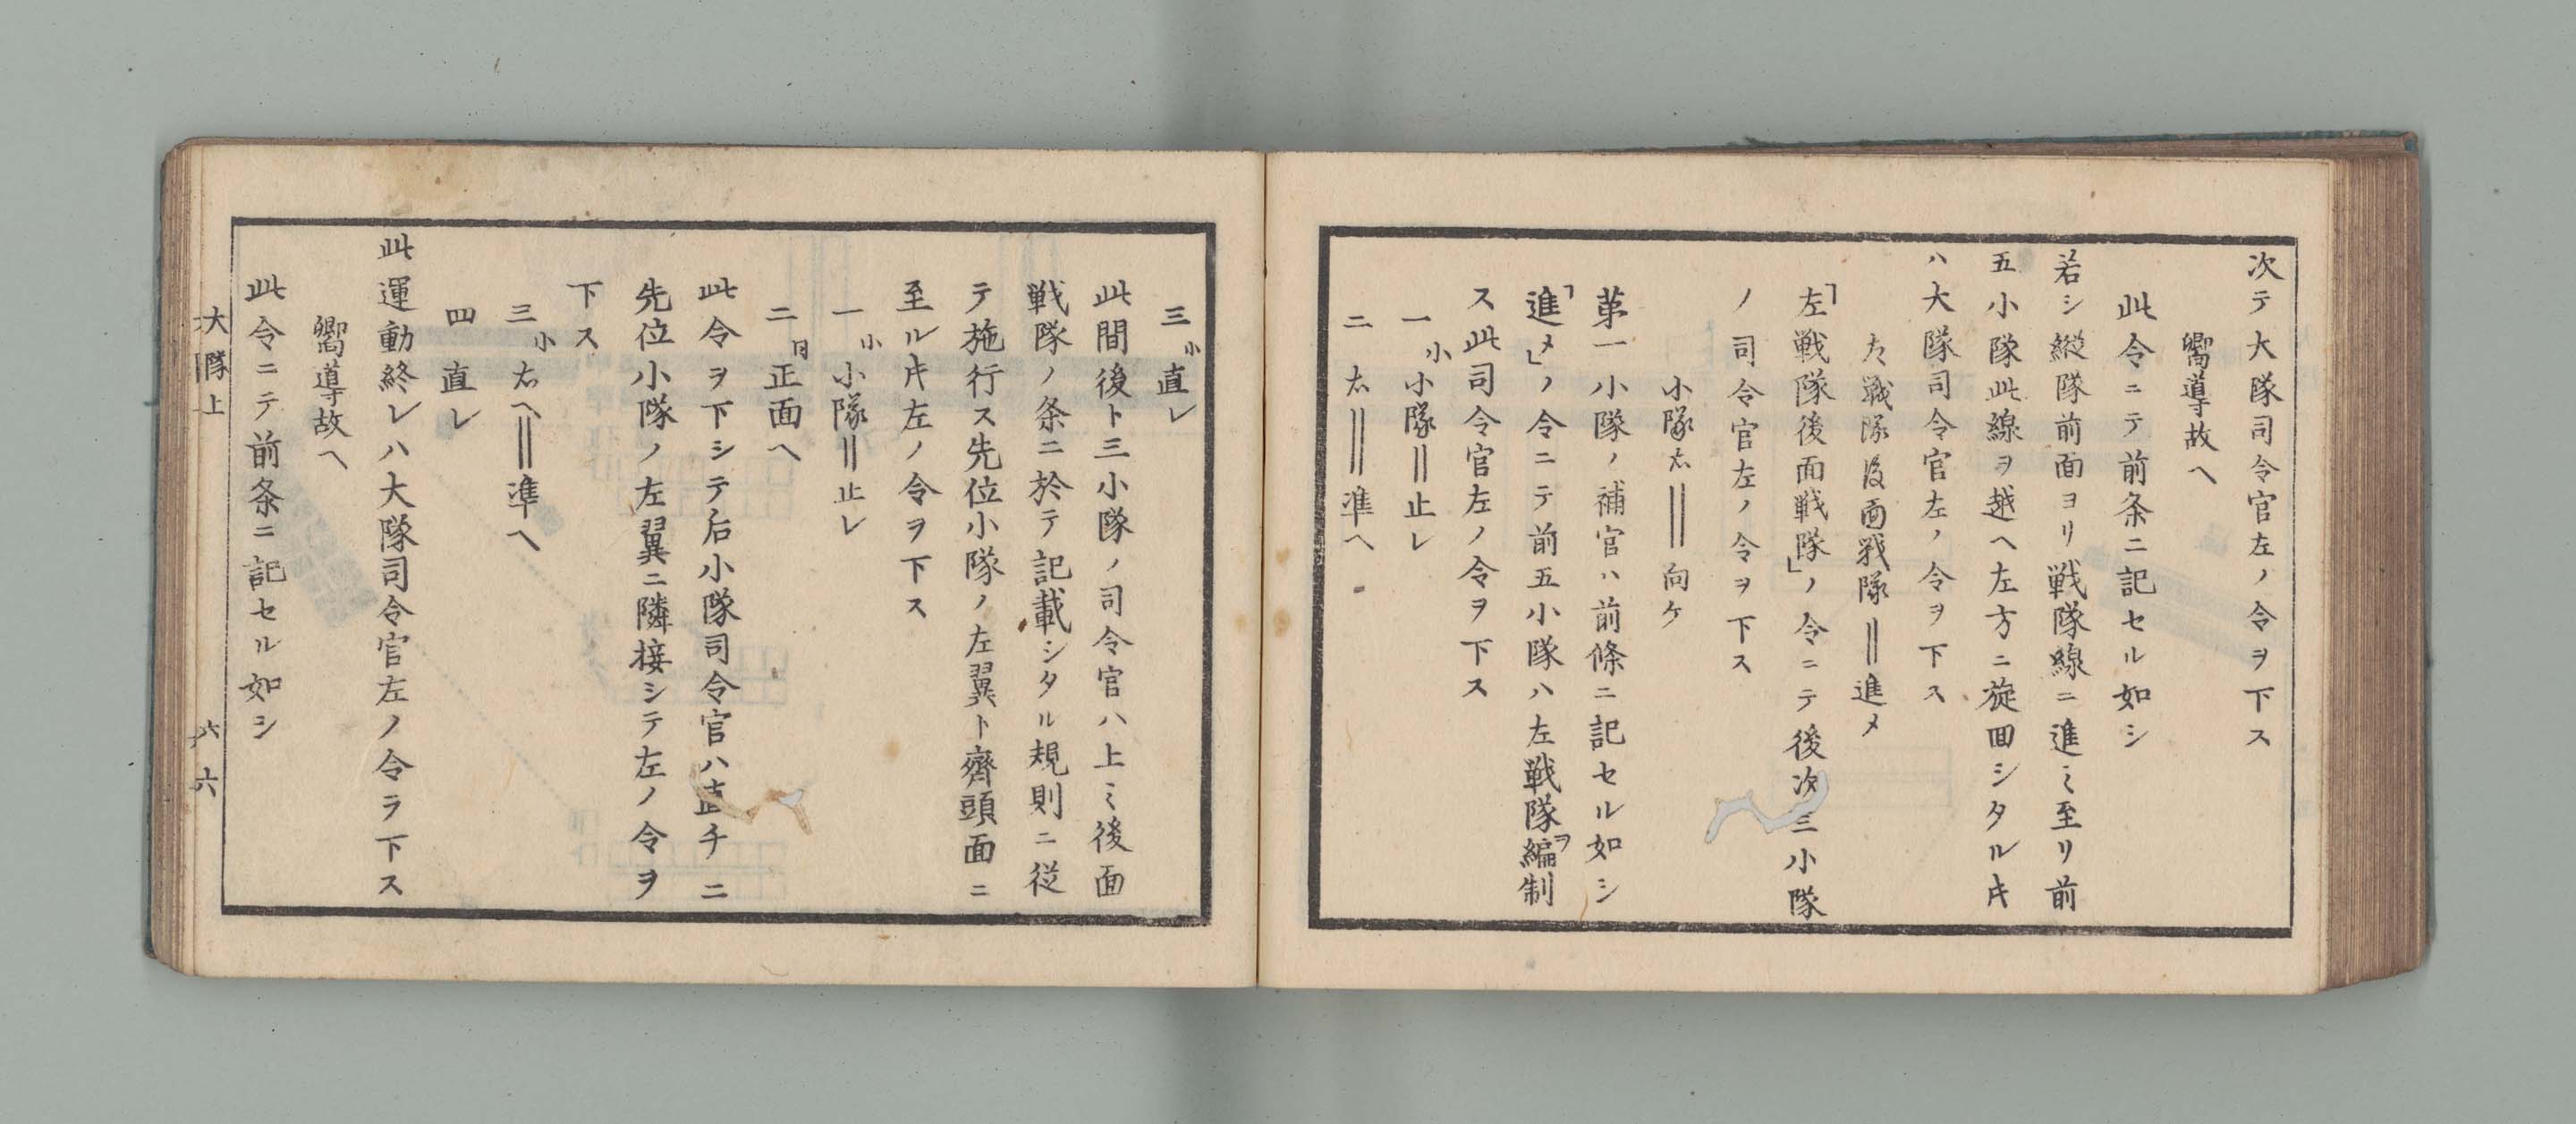 次テ大隊司令官左ノ令ヲ下ス
嚮導故ヘ
此令ニテ前条ニ記セル如シ
若シ縦隊前面ヨリ戦隊線ニ進ミ至リ前
五小隊此線ヲ越ヘ左方ニ旋回シタル𪜈
ハ大隊司令官左ノ令ヲ下ス
左戦隊後面戦隊‖進メ
「左戦隊後面戦隊」ノ令ニテ後次三小隊
ノ司令官左ノ令ヲ下ス
小隊右‖向ケ
第一小隊ノ補官ハ前條ニ記セル如シ
「進メ」ノ令ニテ前五小隊ハ左戦隊ヲ編制
ス此司令官左ノ令ヲ下ス
一 小 小隊‖止レ
二 右‖準ヘ
三 小 直レ
此間後ト三小隊ノ司令官ハ上ミ後面
戦隊ノ条ニ於テ記載シタル規則ニ従
テ施行ス先位小隊ノ左翼ト齊頭面ニ
至ル𪜈左ノ令ヲ下ス
一 小 小隊‖止レ
二 同 正面ヘ
此令ヲ下シテ后小隊司令官ハ直チニ
先位小隊ノ左翼ニ隣接シテ左ノ令ヲ
下ス
三 小 右ヘ‖準ヘ
四 直レ
此運動終レハ大隊司令官左ノ令ヲ下ス
嚮導故ヘ
此令ニテ前条ニ記セル如シ
大隊上 六六